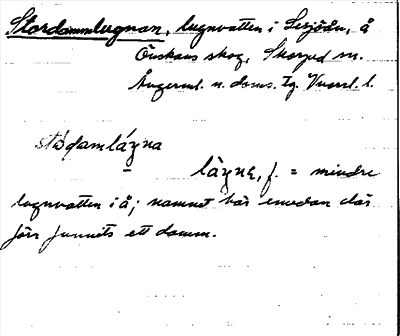 Stordammlugnan, lugnvatten i Lesjöån, å
Önskans skog, Skorped sn.
Ångerml. n. doms. tg. Vnorrl. l.
stódamláyna
làyna, f. = mindre
lugnvatten i å; namnet bär emedan där
förr funnits ett damm.